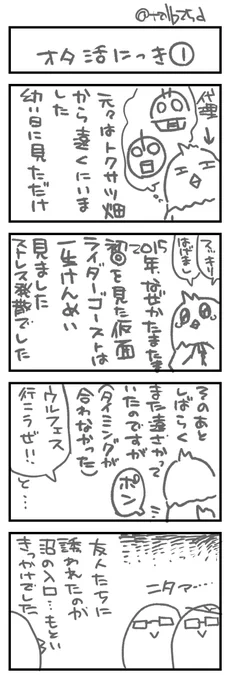 オタ活にっき①
代理
元々はトクサツ畑
から遠くにいま
した
幼い日に見ただけ
2015年、なぜかたまたま
を見た仮面
ライダーゴーストは
一生けんめい
見ました
ストレス発散でした
そのあと
しばらく
また遠さかって
いたのですが
(タイミングが
合わなかった)
ポン
ウルフェス
行こうぜ!!
と…
ニタァ…
友人たちに
誘われたのが
沼の入口…もとい
きっかけでした